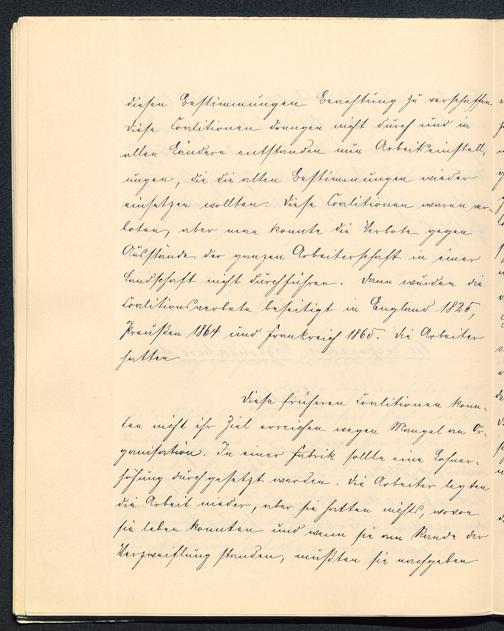 diesen Bestimmungen Beachtung zu verschaffen.
Diese Coalitionen drangen nicht durch und in
allen Ländern entstanden nun Arbeitseinstell-
ungen, die die alten Bestimmungen wieder
einsetzen wollten. Diese Coalitionen waren ver-
boten, aber man konnte die Verbote gegen
Ausstände der ganzen Arbeiterschaft in einer
Landschaft nicht durchführen. Dann wurden die
Coalitionsverbote beseitigt in England 1825,
Preußen 1864 und Frankreich 1865. Die Arbeiter
hatten
Diese früheren Coalitionen konn-
ten nicht ihr Ziel erreichen wegen Mangel an Or-
ganisation. In einer Fabrik sollte eine Lohner-
höhung durchgesetzt werden. Die Arbeiter legten
die Arbeit nieder, aber sie hatten nichts, wovon
sie leben konnten und wenn sie am Rande der
Verzweiflung standen, mußten sie nachgeben